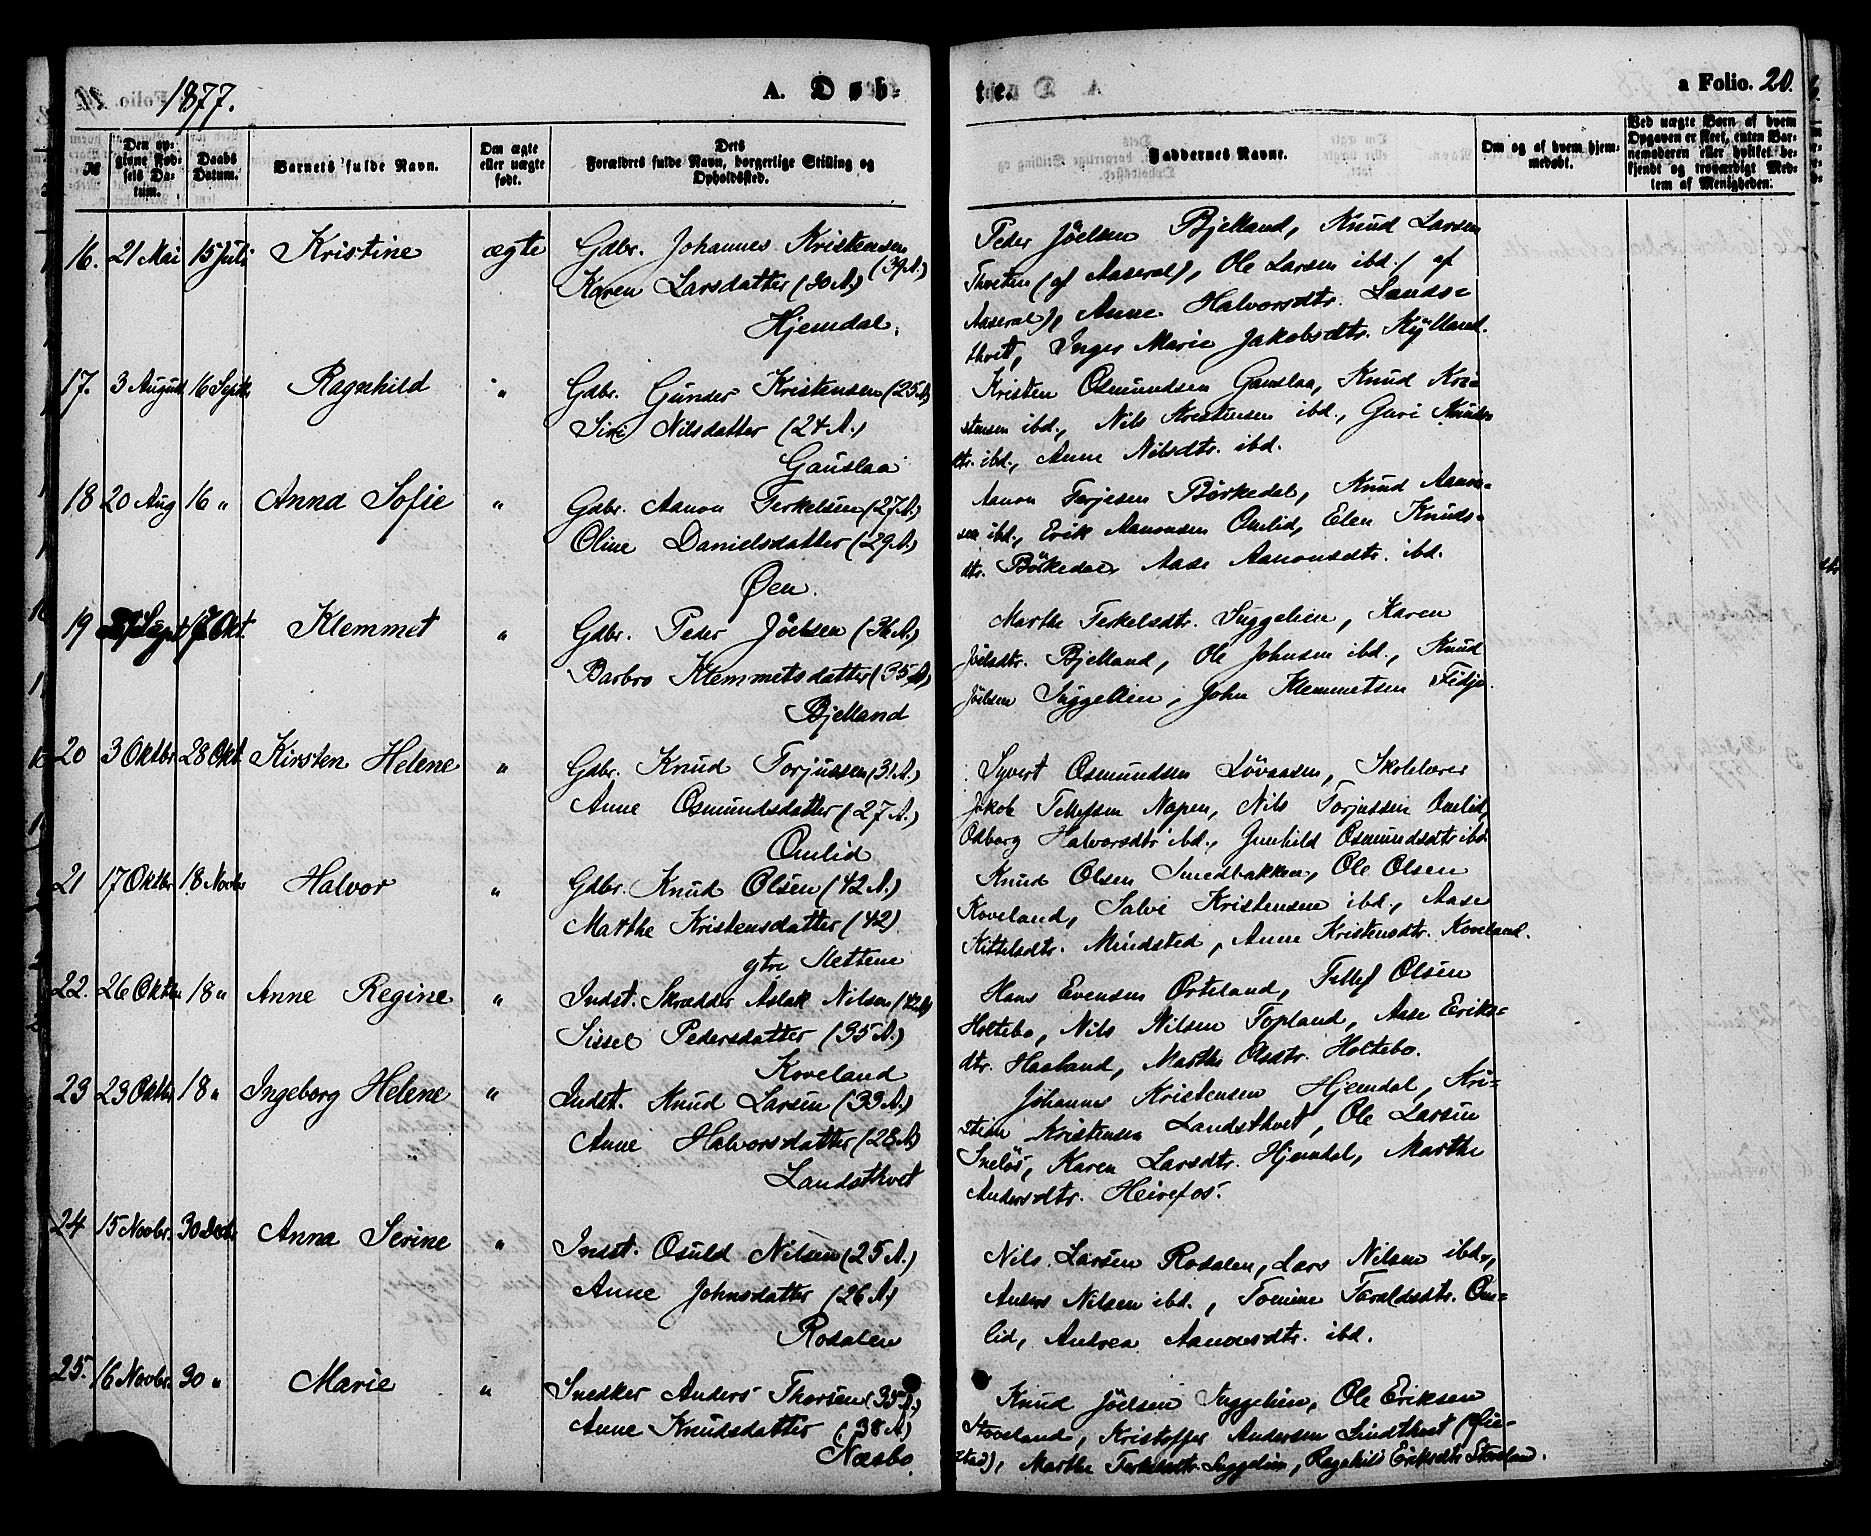 1877.
A. Døb-
te.
a Folio. 20.
№
Den op-
givne Fød-
sels Da-
tum.
Daabs
Datum.
Barnets fulde Navn.
Om ægte
eller uægte
født.
Dets
Forældres fulde Navn, borgerlige Stilling og
Opholdssted.
Faddernes Navne.
Om og af hvem hjem-
medøbt.
Ved uægte Børn af hvem
Opgaven er skeet, enten Bar-
nemoderen eller hvilket be-
kjendt og troværdigt Med-
lem af Menigheden.
16. 21 Mai 15 Juli Kristine ægte Gdbr. Johannes Kristensen
(39 A.)
Karen Larsdatter (30 A.)
Hjemdal.
Peder Jöelsen Bjelland, Knud Larsen
Thveten (af Aaseral), Ole Larsen ibd. (af
Aaseral), Anne Halvorsdtr. Lands=
thvet, Inger Marie Jakobsdtr. Kylland.
17. 3 August 16 Septb. Ragnhild " Gdbr. Gunder Kristensen (25 A)
Siri Nilsdatter (24 A.)
Gauslaa
Kristen Osmundsen Gauslaa, Knud Kri-
stensen ibd., Nils Kristensen ibd., Guri Knuds-
dtr. ibd., Anne Nilsdtr. ibd.
18 20 Aug 16 " Anna Sofie " Gdbr. Aanon Terkelsen (27 A.)
Oline Danielsdatter (29 A.)
Øen.
Aanon Terjesen Börkedal, Knud Aanon-
sen ibd., Erik Aanonsen Omlid, Elen Knuds-
dtr. Börkedal, Aase Aanonsdtr. ibd.
19 Sept Okt. Klemmet " Gdbr. Peder Jöelsen (36 A.)
Barbro Klemmetsdatter (35 A)
Bjelland
Marthe Terkelsdtr. Suggelien, Karen
Jöelsdtr. Bjelland, Ole Johnsen ibd., Knud
Jöelsen Suggelien, John Klemmetsen Fidje.
20 3 Oktbr 28 Okt. Kirsten Helene " Gdbr. Knud Torjussen (31 A.)
Anne Osmundsdatter (27 A.)
Omlid
Syvert Osmundsen Lövaasen, Skolelærer
Jakob Tellefsen Napen, Nils Torjussen Omlid,
Odborg Halvorsdtr ibd., Gunhild Osmundsdtr ibd.
21 17 Oktbr 18 Novbr Halvor " Gdbr. Knud Olsen (42 A.)
Marthe Kristensdatter (42).
Slettene
Knud Olsen Smedbakken, Ole Olsen
Koveland, Salve Kristensen ibd., Aase
Kittelsdtr. Mindsted, Anne Kristensdtr. Koveland.
22. 26 Oktbr 18 " Anne Regine " Indst. Skrædder Aslak Nilsen (42 A)
Sissel Pedersdatter (35 A.)
Koveland
Hans Evensen Örteland, Tellef Olsen
Holtebo, Nils Nilsen Topland, Aase Eriks=
dtr. Haaland, Marthe Olsdtr. Holtebo.
23 23 Oktbr 18 " Ingeborg Helene " Indst. Knud Larsen (33 A.)
Anne Halvorsdatter (28 A)
Landsthvet
Johannes Kristensen Hjemdal, Kri-
stian Kristensen Landsthvet, Ole Larsen
Snelös, Karen Larsdtr. Hjemdal, Marthe
Andersdtr. Heirefos.
24 15 Novbr. 30 Decbr. Anna Serine " Indst. Osuld Nilsen (25 A.)
Anne Johnsdatter (26 A.)
Rosalen
Nils Larsen Rosalen, Lars Nilsen ibd.,
Anders Nilsen ibd., Tomine Taraldsdtr. Om-
lid, Andrea Aanensdtr. ibd.
25. 16 Novbr. 30 " Marie " Snedker Anders Thorsen (35 A.)
Anne Knudsdatter (38 A)
Næsbo.
Knud Jöelsen Suggelien, Ole Eriksen
Stoveland, Kristoffer Andersen Lindthvet (Öie-
stad), Marthe Terkelsdtr. Suggelien, Ragnhild Eriksdtr Stoveland.